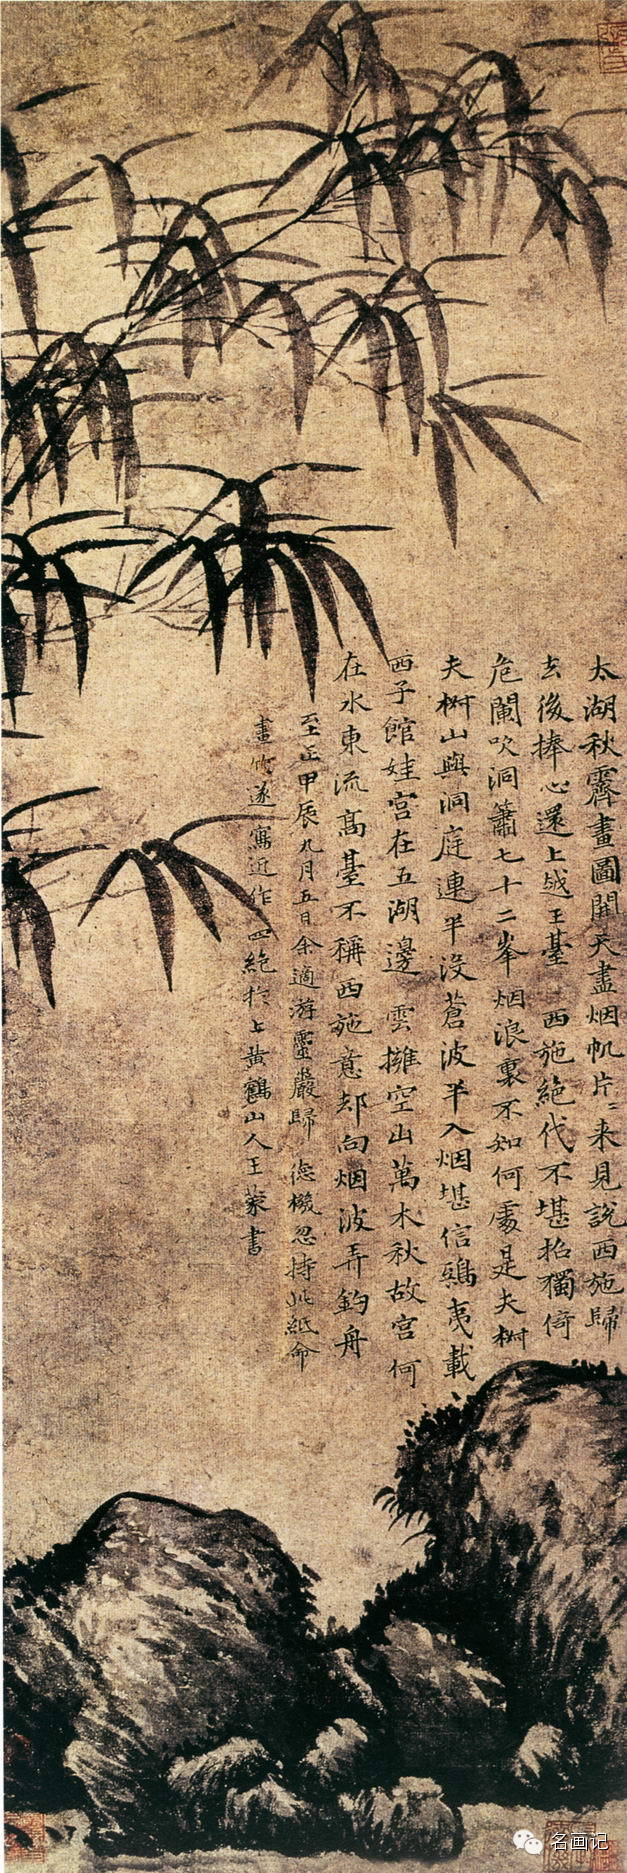 太湖秋霽畫圖開天盡烟帆片〻来見說西施歸
去後捧心還上越王臺 西施絕代不堪招獨倚
危闌吹洞簫七十二峯烟浪裏不知何處是夫椒
夫椒山與洞庭連半沒蒼波半入烟堪信鴟夷載
西子館娃宮在五湖邊 雲擁空山萬木秋故宮何
在水東流高臺不稱西施意却向烟波弄釣舟
至正甲辰九月五日余適游靈巖歸 德機忽持此紙命
畫竹遂寫近作四絕於上黄鶴山人王蒙書
名画记